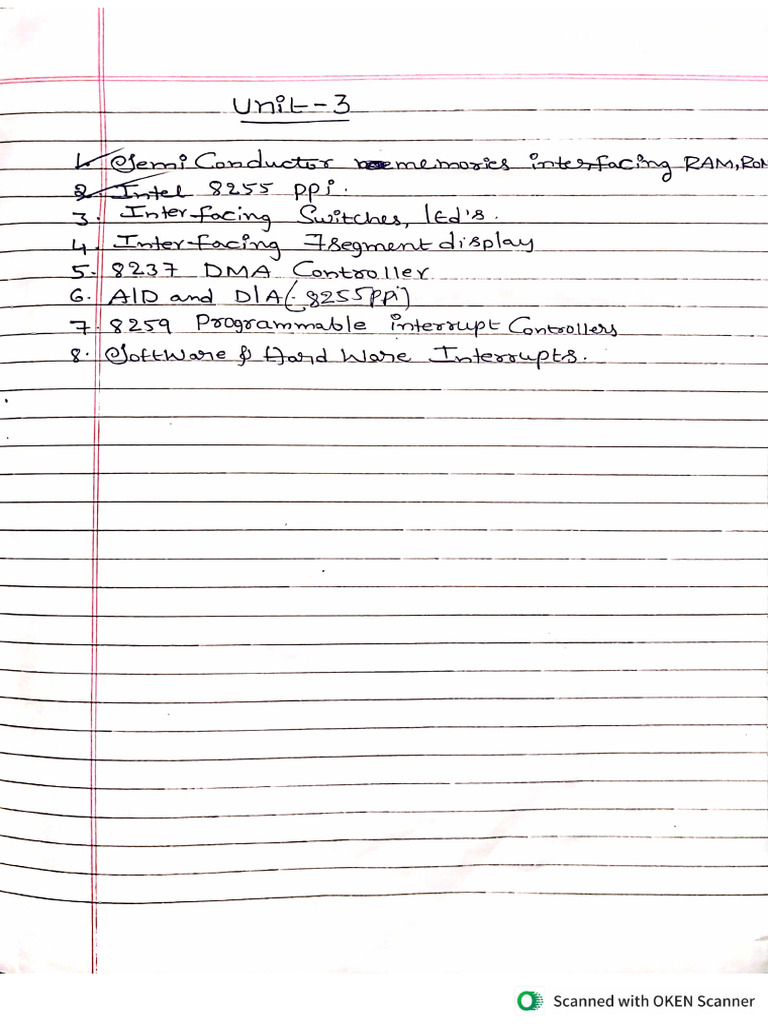 Unit-3
1. Semi Conductor memories interfacing RAM, ROM
2. Intel 8255 PPi.
3. Interfacing Switches, lEd's.
4. Interfacing 7segment display
5. 8237 DMA Controller
6. A/D and D/A(: 8255ppi)
7. 8259 Programmable interrupt Controllers
8. Software & Hard Ware Interrupts.
Scanned with OKEN Scanner